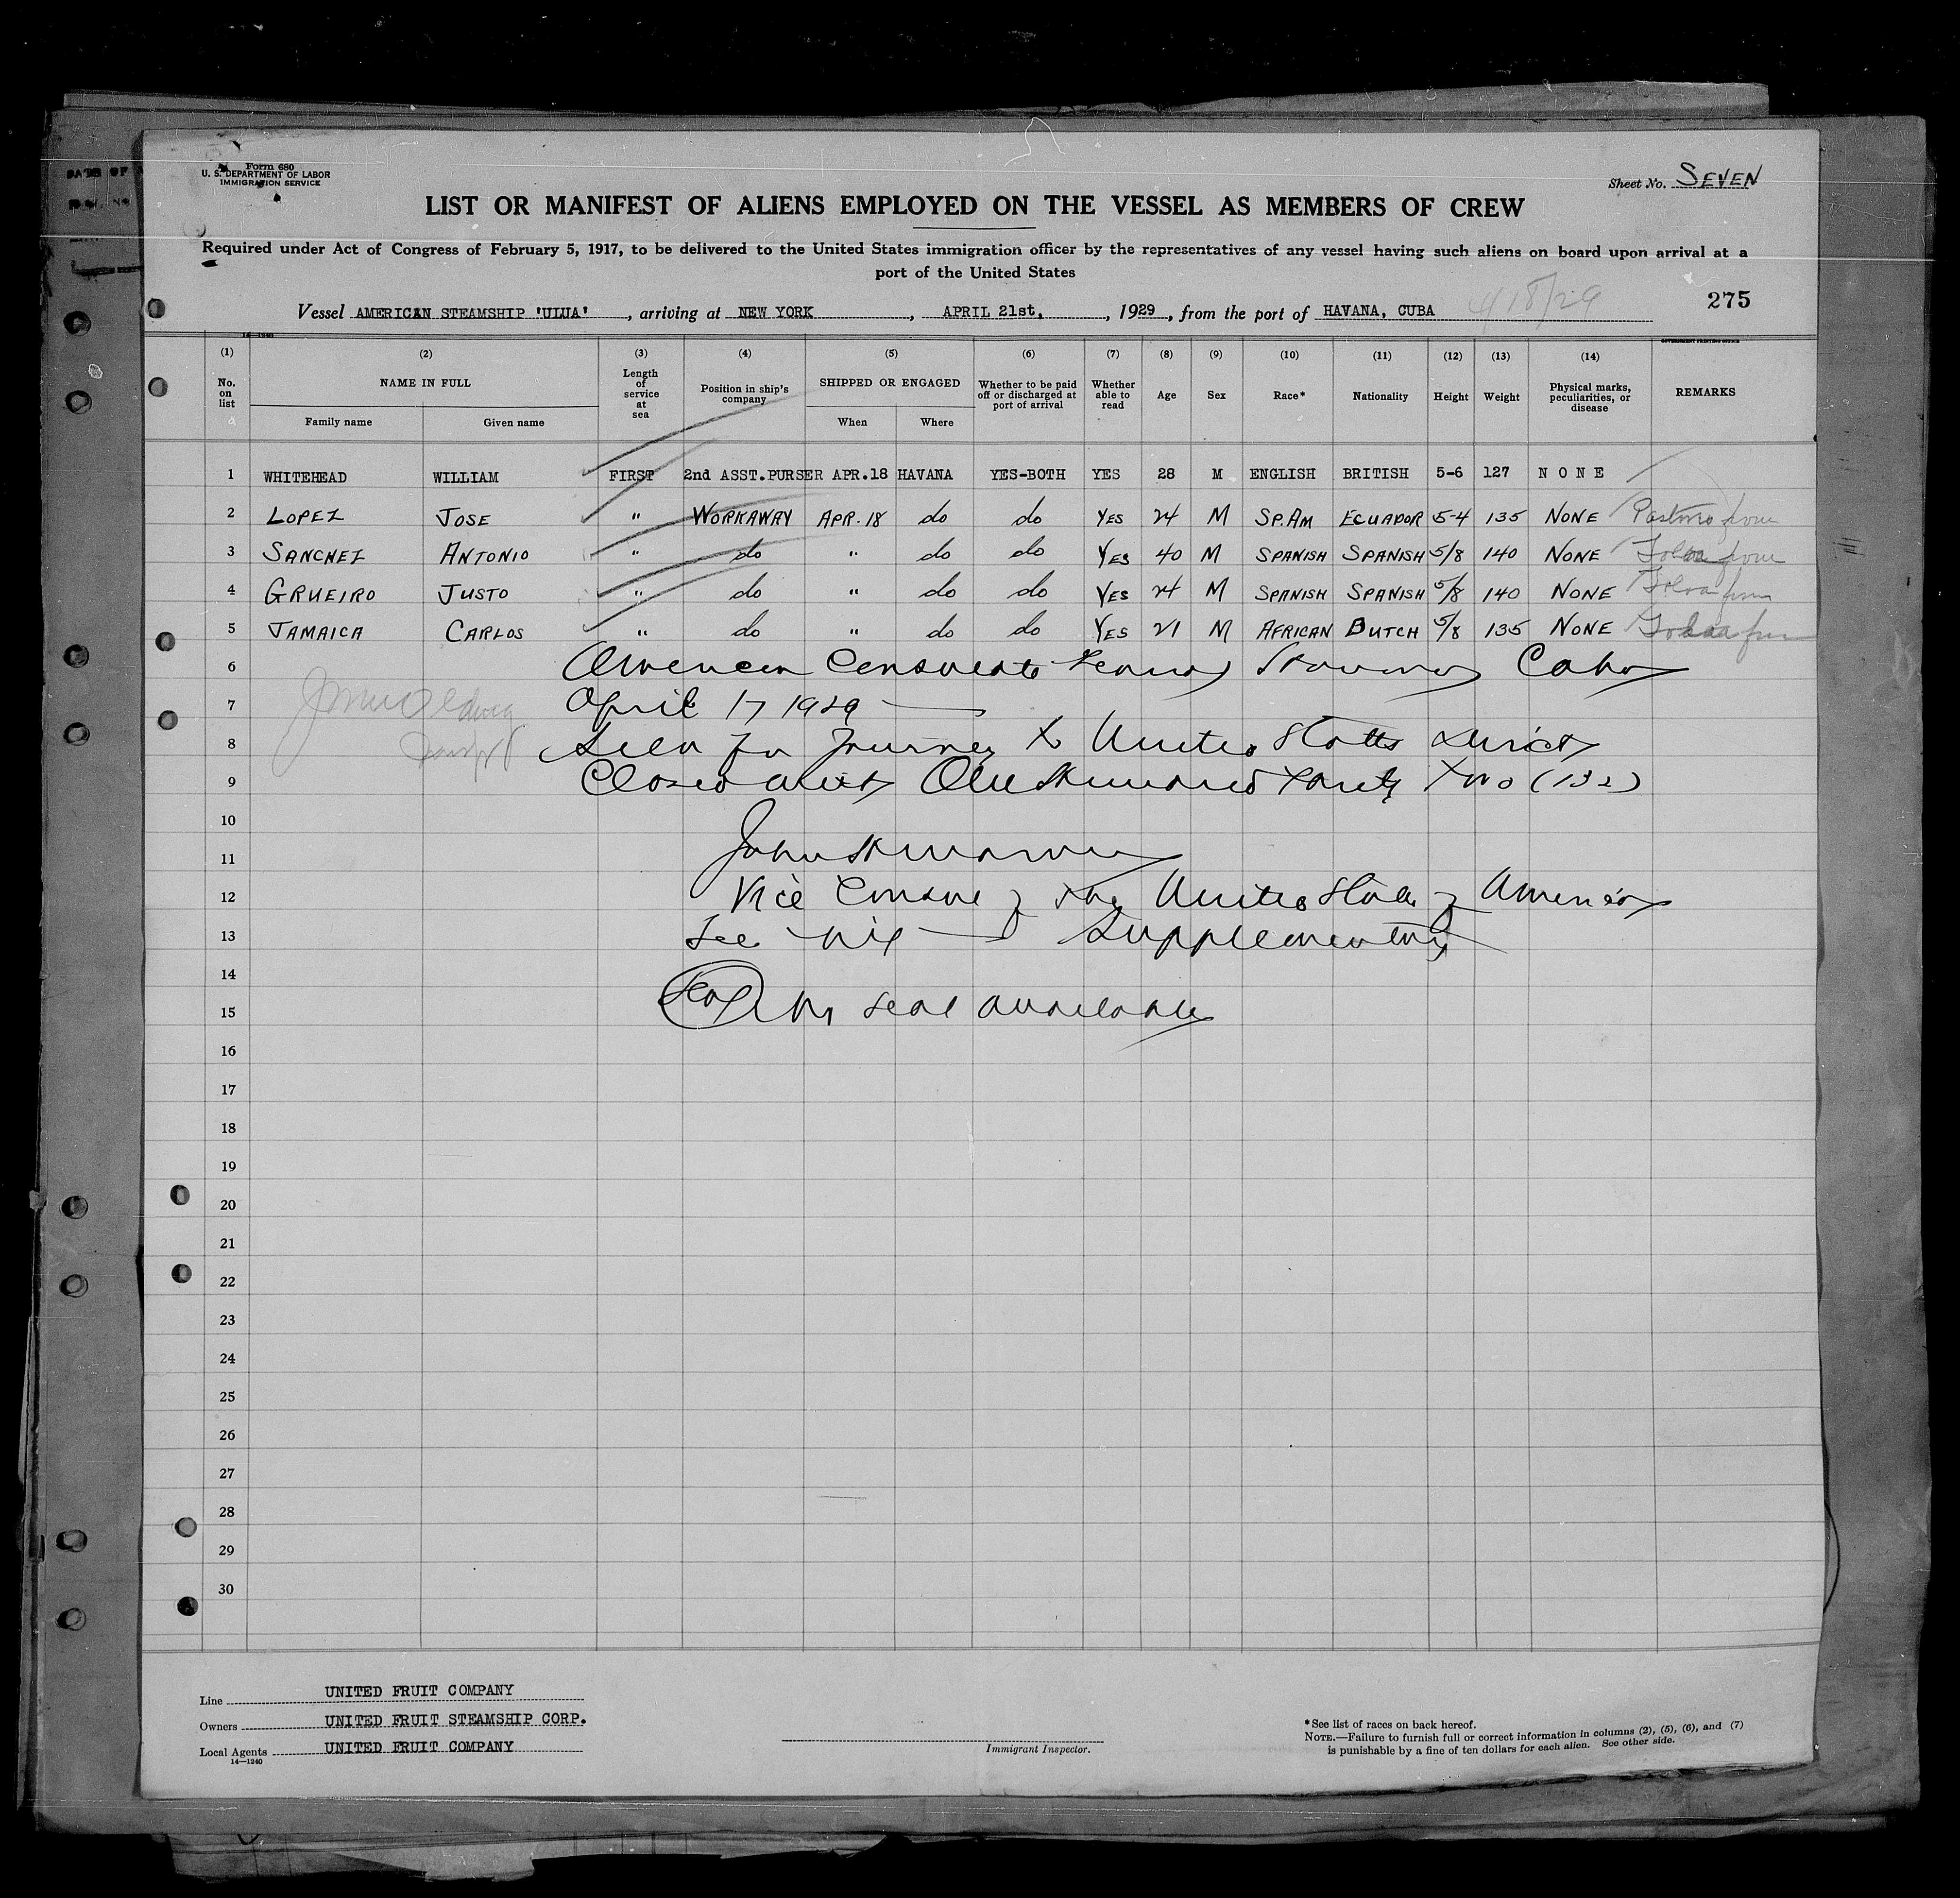 Form 680
U. S. DEPARTMENT OF LABOR
IMMIGRATION SERVICE
Sheet No. SEVEN
LIST OR MANIFEST OF ALIENS EMPLOYED ON THE VESSEL AS MEMBERS OF CREW
Required under Act of Congress of February 5, 1917, to be delivered to the United States immigration officer by the representatives of any vessel having such aliens on board upon arrival at a
port of the United States
275
Vessel AMERICAN STEAMSHIP 'ULUA', arriving at NEW YORK, APRIL 21st, 1929, from the port of HAVANA, CUBA 4/18/29
14-1240
GOVERNMENT PRINTING OFFICE
(1) (2) (3) (4) (5) (6) (7) (8) (9) (10) (11) (12) (13) (14)
No. on list NAME IN FULL Length of service at sea Position in ship's company SHIPPED OR ENGAGED Whether to be paid off or discharged at port of arrival Whether able to read Age Sex Race* Nationality Height Weight Physical marks, peculiarities, or disease REMARKS
Family name Given name When Where
1 WHITEHEAD WILLIAM FIRST 2nd ASST.PURSER APR.18 HAVANA YES-BOTH YES 28 M ENGLISH BRITISH 5-6 127 NONE
2 LOPEZ JOSE " WORKAWAY APR.18 do do YES 24 M SP.AM ECUADOR 5-4 135 NONE
3 SANCHEZ ANTONIO " do " do do YES 40 M SPANISH SPANISH 5/8 140 NONE
4 GRUEIRO JUSTO " do " do do YES 24 M SPANISH SPANISH 5/8 140 NONE
5 JAMAICA CARLOS " do " do do YES 21 M AFRICAN DUTCH 5/8 135 NONE
6 American Consulate General Havana Cuba
7 April 17 1929
8 Seen for Journey to United States
9 Closed One Hundred Thirty Two (132)
10
11
12 Vice Consul of the United States of America
13 See Supplementary
14 Seal
15 No seal available
16
17
18
19
20
21
22
23
24
25
26
27
28
29
30
Line UNITED FRUIT COMPANY
Owners UNITED FRUIT STEAMSHIP CORP.
Local Agents UNITED FRUIT COMPANY
14—1240
Immigrant Inspector.
*See list of races on back hereof.
NOTE.—Failure to furnish full or correct information in columns (2), (5), (6), and (7)
is punishable by a fine of ten dollars for each alien. See other side.